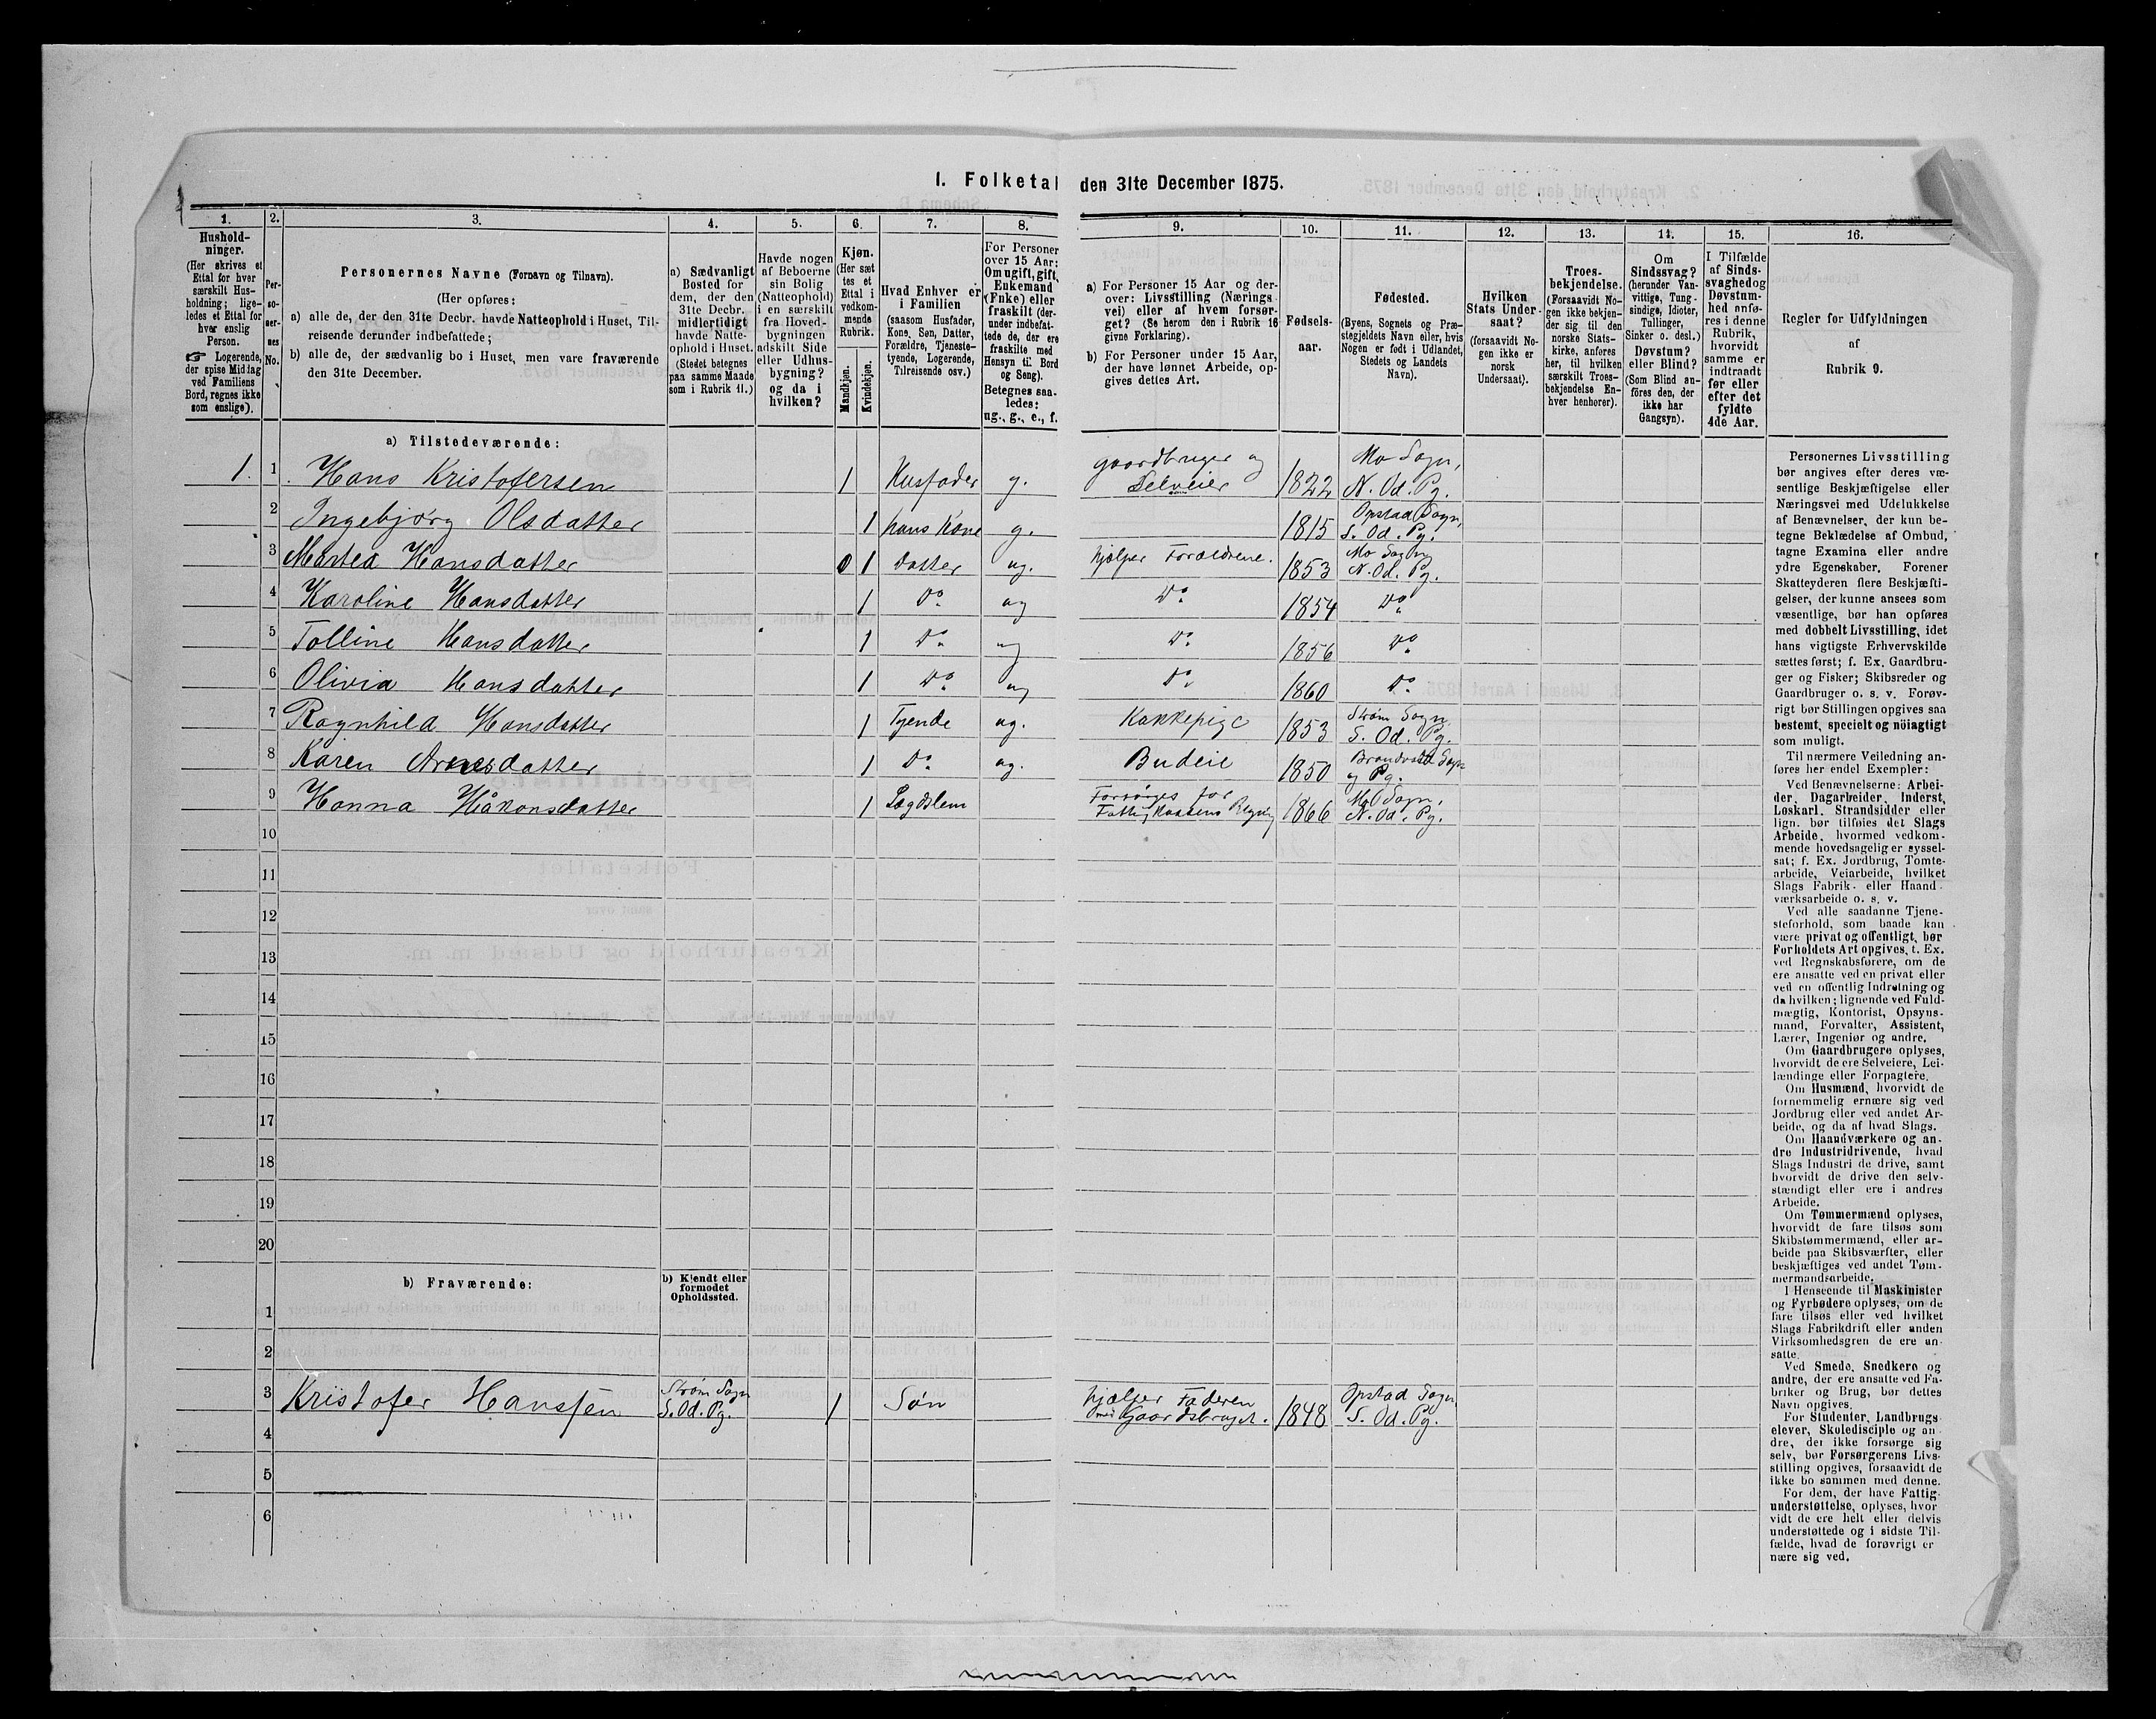 I. Folketal den 31te December 1875.
1. 2. 3. 4. 5. 6. 7. 8. 9. 10. 11. 12. 13. 14. 15. 16.
Hushold-
ninger.
(Her skrives et
Ettal for hver
særskilt Hus-
holdning; lige-
ledes et Ettal for
hver enslig
Person.
☞ Logerende,
der spise Middag
ved Familiens
Bord, regnes ikke
som enslige).
Per-
so-
ner-
nes
No.
Personernes Navne (Fornavn og Tilnavn).
(Her opføres:
a) alle de, der den 31te Decbr. havde Natteophold i Huset, Til-
reisende derunder indbefattede;
b) alle de, der sædvanlig bo i Huset, men vare fraværende
den 31te December.
a) Sædvanligt
Bosted for
dem, der den
31te Decbr.
midlertidigt
havde Natte-
ophold i Huset.
(Stedet betegnes
paa samme Maade
som i Rubrik 11.)
Havde nogen
af Beboerne
sin Bolig
(Natteophold)
i en særskilt
fra Hoved-
bygningen
adskilt Side
eller Udhus-
bygning?
og da i
hvilken?
Kjøn.
(Her sæt
tes et
Ettal i
vedkom-
mende
Rubrik.
Mandkjøn.
Kvindekjøn.
Hvad Enhver er
i Familien
(saasom Husfader,
Kone, Søn, Datter,
Forældre, Tjeneste-
tyende, Logerende,
Tilreisende osv.)
For Personer
over 15 Aar:
Om ugift, gift,
Enkemand
(Enke) eller
fraskilt (der-
under indbefat-
tede de, der ere
fraskilte med
Hensyn til Bord
og Seng).
Betegnes saa-
ledes:
ug., g., e., f.
a) For Personer 15 Aar og der-
over: Livsstilling (Nærings
vei) eller af hvem forsør-
get? (Se herom den i Rubrik 16
givne Forklaring).
b) For Personer under 15 Aar,
der have lønnet Arbeide, op-
gives dettes Art.
Fødsels-
aar.
Fødested.
(Byens, Sognets og Præ-
stegjeldets Navn eller, hvis
Nogen er født i Udlandet,
Stedets og Landets
Navn).
Hvilken
Stats Under-
saat?
(forsaavidt No-
gen ikke er
norsk
Undersaat).
Troes-
bekjendelse.
(Forsaavidt No-
gen ikke bekjen-
der sig til den
norske Stats-
kirke, anføres
her, til hvilken
særskilt Troes-
bekjendelse En-
hver henhører).
Om
Sindssvag?
(herunder Van-
vittige, Tung-
sindige, Idioter,
Tullinger,
Sinker o. desl.)
Døvstum?
eller Blind?
(Som Blind an-
føres den, der
ikke har
Gangsyn).
I Tilfælde
af Sinds-
svaghed og
Døvstum-
hed anfø-
res i denne
Rubrik,
hvorvidt
samme er
indtraadt
før eller
efter det
fyldte
4de Aar.
Regler for Udfyldningen
af
Rubrik 9.
a) Tilstedeværende:
1. 1 Hans Kristofersen 1 Husfader g. gaardbruger og Selveier 1822 Mo Sogn, N. Od. Pg.
2 Ingebjørg Olsdatter 1 hans Kone g. 1815 Opstad Sogn, S. Od. Pg.
3 Martea Hansdatter 0 1 datter ug. hjelper Forældrene. 1853 Mo Sogn N. Od. Pg.
4 Karoline Hansdatter 1 Do ug Do 1854 Do
5 Tolline Hansdatter 1 Do ug Do 1856 Do
6 Olivia Hansdatter 1 Do ug Do 1860 Do
7 Ragnhild Hansdatter 1 Tyende ug. Kokkepige 1853 Strøm Sogn S. Od. Pg.
8 Karen Arnesdatter 1 Do ug. Budeie 1850 Brandvold Sogn og Pg.
9 Hanna Håkonsdatter 1 Lægdslem Forsørges for Fattigkassens Regning 1866 Mo Sogn, N. Od. Pg.
10
11
12
13
14
15
16
17
18
19
20
b) Fraværende:
b) Kjendt eller
formodet
Opholdssted.
1
2
3 Kristofer Hanssen Strøm Sogn S. Od. Pg. 1 Søn hjælper Faderen med Gaardsbruget. 1848 Opstad Sogn, S. Od. Pg.
4
5
6
Personernes Livsstilling
bør angives efter deres væ-
sentlige Beskjæftigelse eller
Næringsvei med Udelukkelse
af Benævnelser, der kun be-
tegne Beklædelse af Ombud,
tagne Examina eller andre
ydre Egenskaber. Forener
Skatteyderen flere Beskjæfti-
gelser, der kunne ansees som
væsentlige, bør han opføres
med dobbelt Livsstilling, idet
hans vigtigste Erhvervskilde
sættes først; f. Ex. Gaardbru-
ger og Fisker; Skibsreder og
Gaardbruger o. s. v. Forøv-
rigt bør Stillingen opgives saa
bestemt, specielt og nöiagtigt
som muligt.
Til nærmere Veiledning an-
føres her endel Exempler:
Ved Benævnelserne: Arbei-
der, Dagarbeider, Inderst,
Løskarl, Strandsidder eller
lign. bør tilføies det Slags
Arbeide, hvormed vedkom-
mende hovedsagelig er syssel-
sat; f. Ex. Jordbrug, Tomte-
arbeide, Veiarbeide, hvilket
Slags Fabrik- eller Haand-
værksarbeide o. s. v.
Ved alle saadanne Tjene-
steforhold, som baade kan
være privat og offentligt, bør
Forholdets Art opgives, t. Ex.
ved Regnskabsførere, om de
ere ansatte ved en privat eller
ved en offentlig Indretning og
da hvilken; lignende ved Fuld-
mægtig, Kontorist, Opsyns-
mand, Forvalter, Assistent,
Lærer, Ingeniør og andre.
Om Gaardbrugere oplyses,
hvorvidt de ere Selveiere, Lei-
lændinge eller Forpagtere.
Om Husmænd, hvorvidt de
fornemmelig ernære sig ved
Jordbrug eller ved andet Ar-
beide, og da af hvad Slags.
Om Haandværkere og an-
dre Industridrivende, hvad
Slags Industri de drive, samt
hvorvidt de drive den selv-
stændigt eller ere i andres
Arbeide.
Om Tømmermænd oplyses,
hvorvidt de fare tilsøs som
Skibstømmermænd, eller ar-
beide paa Skibsværfter, eller
beskjæftiges ved andet Tøm-
mermandsarbeide.
I Henseende til Maskinister
og Fyrbødere oplyses, om de
fare tilsøs eller ved hvilket
Slags Fabrikdrift eller anden
Virksomhedsgren de ere an-
satte.
Ved Smede, Snedkere og
andre, der ere ansatte ved Fa-
briker og Brug, bør dettes
Navn opgives.
For Studenter, Landbrugs
elever, Skoledisciple og an-
dre, der ikke forsørge sig
selv, bør Forsørgerens Livs-
stilling opgives, forsaavidt de
ikke bo sammen med denne.
For dem, der have Fattig-
understøttelse, oplyses, hvor
vidt de ere helt eller delvis
understøttede og i sidste Til-
fælde, hvad de forøvrigt er
nære sig ved.